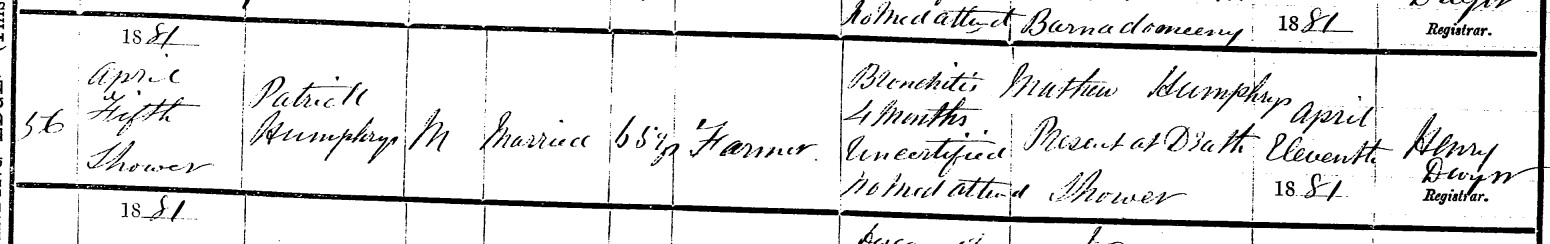 No Med attend Barnadomeeny 1881 Registrar.
1881
April
Fifth
Shower
56
Patrick
Humphrys
M
Married
65 yrs
Farmer.
Bronchitis
4 Months
Uncertified
No Med attend
Mathew Humphrys
Present at Death
Shower
April
Eleventh
1881
Henry
Dwyer
Registrar.
1881